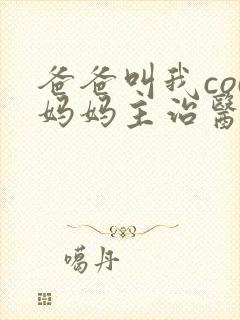 爸爸叫我co
妈妈主治醫
噶丹